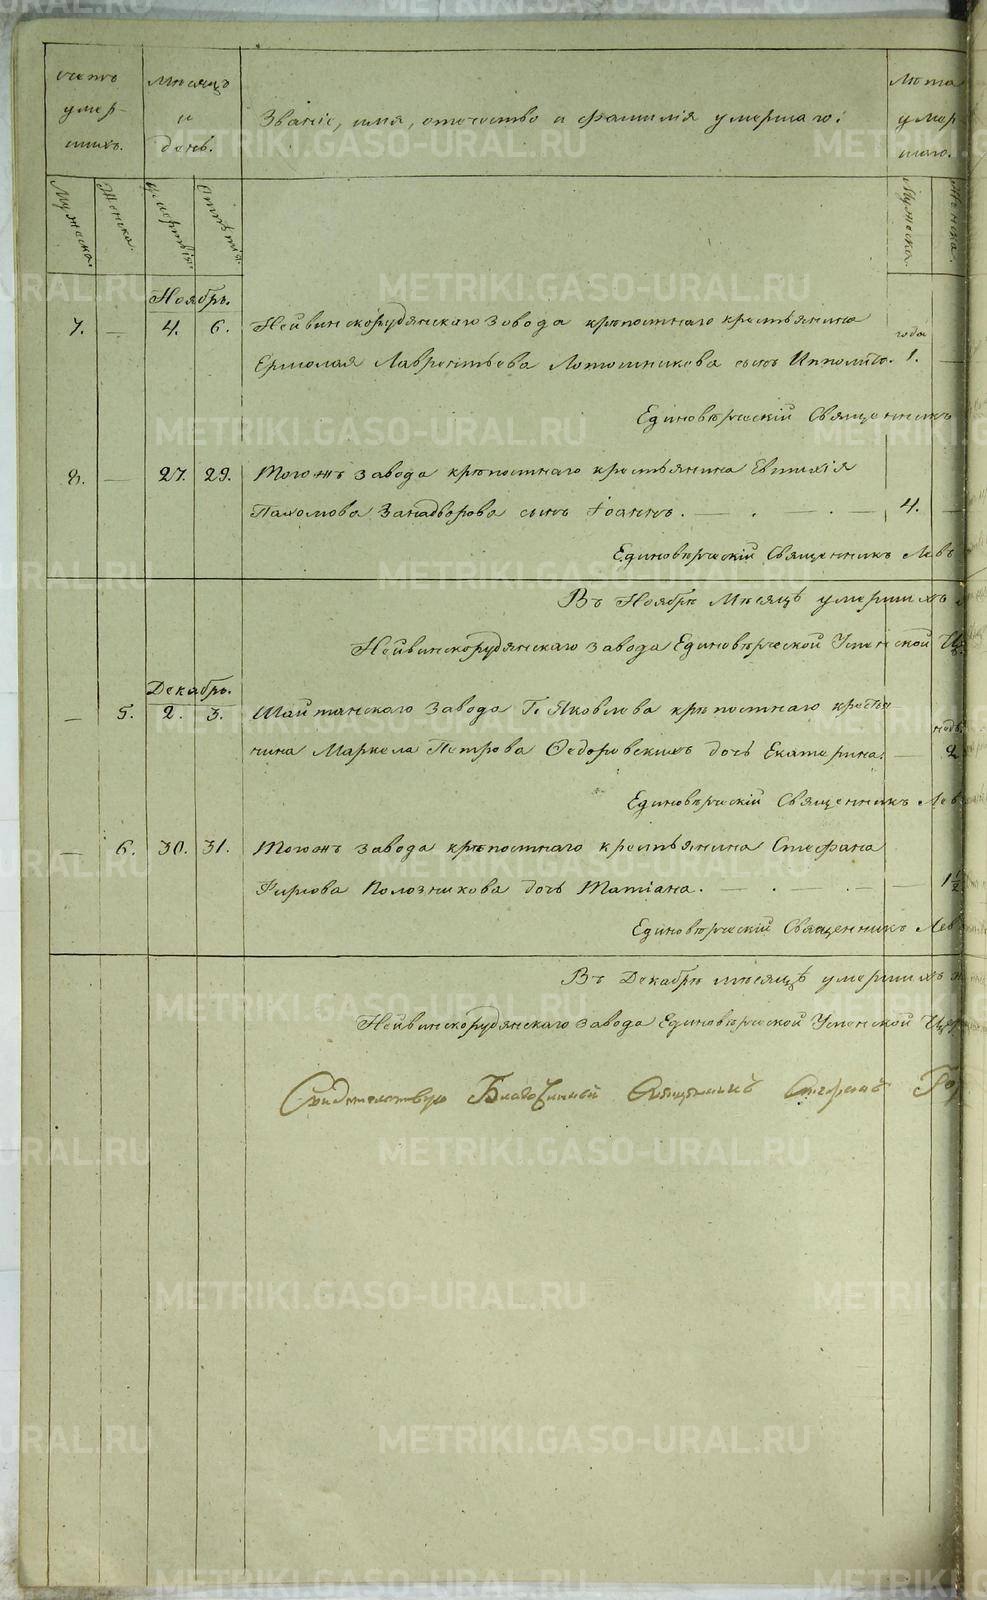 Счетъ умер- шихъ.
Мѣсяцъ и день.
Званіе, имя, отечество и фамилія умершаго:
Лѣта умер шаго.
Мужеска. Женска. Смерти. Отпѣтія. Мужеска. Женска.
Ноябрь.
7. — 4. 6. Нейвинскорудянскаго завода крѣпостнаго крестьянина года
Ермолая Лаврентьева Лотошникова сынъ Ипполитъ. 1. —
Единовѣрческій Священникъ
8. — 27. 29. Тогожъ завода крѣпостнаго крестьянина Евтихія
Пахомова Занадворова сынъ Іоаннъ. — . — 4. —
Единовѣрческій Священникъ Левъ
Въ Ноябрѣ Мѣсяцѣ умершихъ
Нейвинскорудянскаго завода Единовѣрческой Успенской Ц
Декабрь.
— 5. 2. 3. Шайтанскаго завода Г. Яковлева крѣпостнаго кресть
янина Маркела Петрова Ѳедоровскихъ дочь Екатерина. — недѣ 2
Единовѣрческій Священникъ Лев
— 6. 30. 31. Тогожъ завода крѣпостнаго крестьянина Стефана
Фирсова Полозникова дочь Татіана. — . — 1 1/2
Единовѣрческій Священникъ Лев
Въ Декабрѣ мѣсяцѣ умершихъ
Нейвинскорудянскаго завода Единовѣрческой Успенской Цер
Свидѣтельствую Благочинный Священникъ Григорій
METRIKI.GASO-URAL.RU